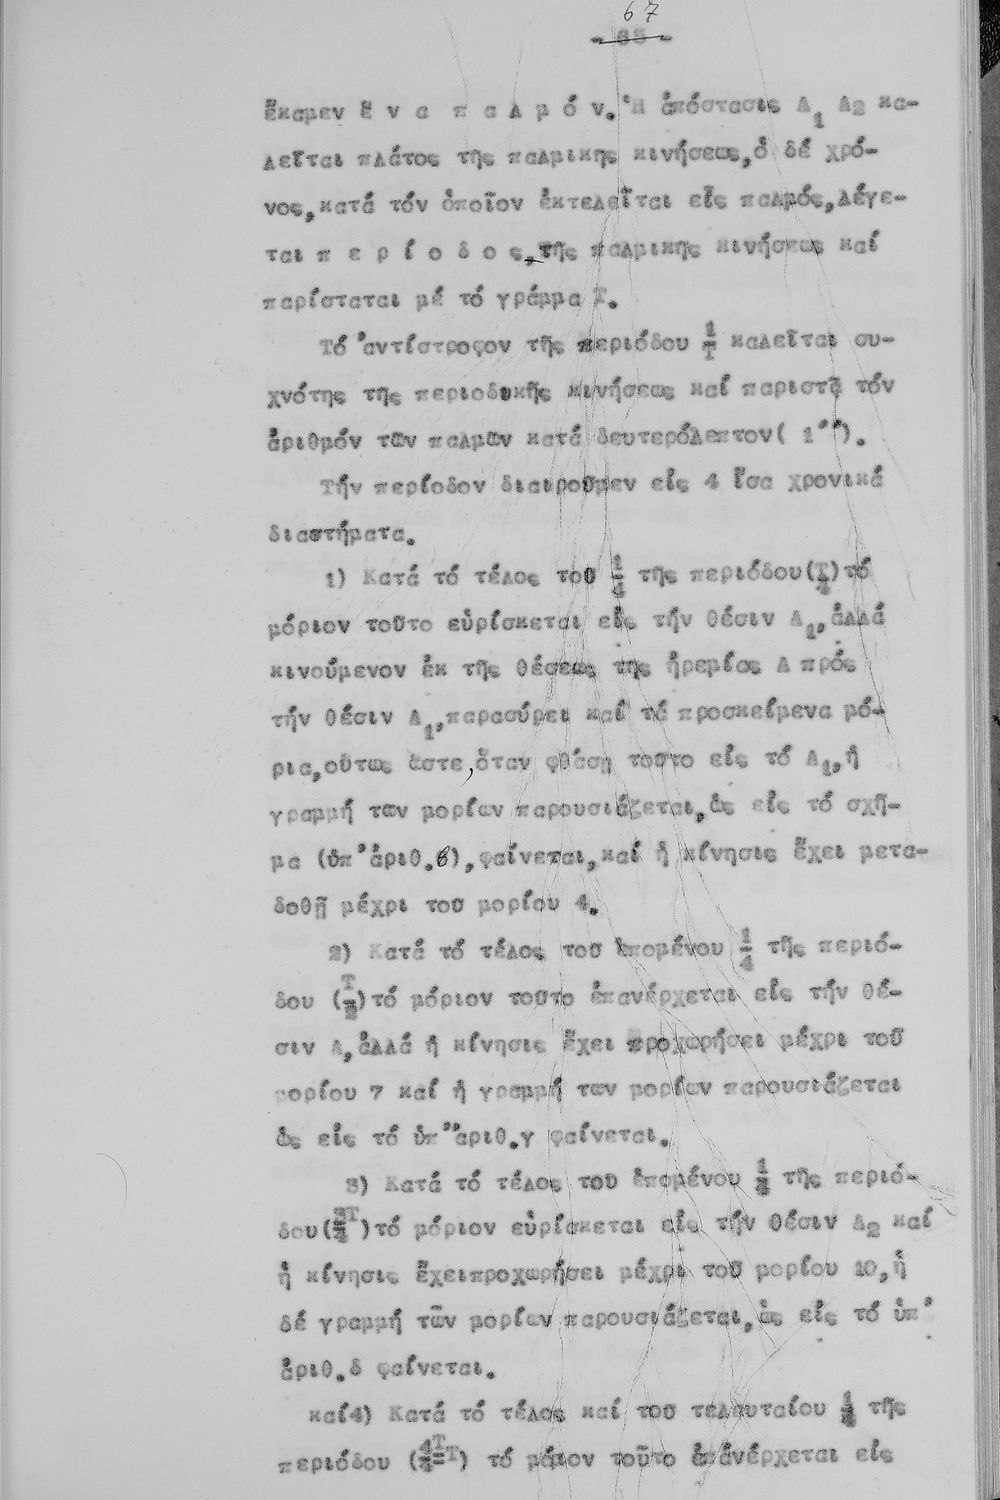 67
- 65 -
ἔκαμεν ἕ ν α π α λ μ ό ν. Ἡ ἀπόστασις Α1 Α2 κα-
λεῖται πλάτος τῆς παλμικῆς κινήσεως, ὁ δέ χρό-
νος, κατά τόν ὁποῖον ἐκτελεῖται εἷς παλμός, λέγε-
ται π ε ρ ί ο δ ο ς, τῆς παλμικῆς κινήσεως καί
παρίσταται μέ τό γράμμα Τ.
Τό ἀντίστροφον τῆς περιόδου 1/Τ καλεῖται συ-
χνότης τῆς περιοδικῆς κινήσεως καί παριστᾷ τόν
ἀριθμόν τῶν παλμῶν κατά δευτερόλεπτον( 1΄΄).
Τήν περίοδον διαιροῦμεν εἰς 4 ἴσα χρονικά
διαστήματα.
1) Κατά τό τέλος τοῦ 1/4 τῆς περιόδου(Τ/4)τό
μόριον τοῦτο εὑρίσκεται εἰς τήν θέσιν Α1, ἀλλά
κινούμενον ἐκ τῆς θέσεως τῆς ἠρεμίας Α πρός
τήν θέσιν Α1, παρασύρει καί τά προσκείμενα μό-
ρια, οὕτως ὥστε, ὅταν φθάσῃ τοῦτο εἰς τό Α1, ἡ
γραμμή τῶν μορίων παρουσιάζεται, ὡς εἰς τό σχῆ-
μα (ὑπ' ἀριθ. β), φαίνεται, καί ἡ κίνησις ἔχει μετα-
δοθῇ μέχρι τοῦ μορίου 4.
2) Κατά τό τέλος τοῦ ἑπομένου 1/4 τῆς περιό-
δου (Τ/2)τό μόριον τοῦτο ἐπανέρχεται εἰς τήν θέ-
σιν Α, ἀλλά ἡ κίνησις ἔχει προχωρήσει μέχρι τοῦ
μορίου 7 καί ἡ γραμμή τῶν μορίων παρουσιάζεται
ὡς εἰς τό ὑπ' ἀριθ. γ φαίνεται.
3) Κατά τό τέλος τοῦ ἑπομένου 1/4 τῆς περιό-
δου(3Τ/4)τό μόριον εὑρίσκεται εἰς τήν θέσιν Α2 καί
ἡ κίνησις ἔχειπροχωρήσει μέχρι τοῦ μορίου 10, ἡ
δέ γραμμή τῶν μορίων παρουσιάζεται, ὡς εἰς τό ὑπ'
ἀριθ. δ φαίνεται.
καί4) Κατά τό τέλος καί τοῦ τελευταίου 1/4 τῆς
περιόδου (4Τ/4=Τ) τό μόριον τοῦτο ἐπανέρχεται εἰς